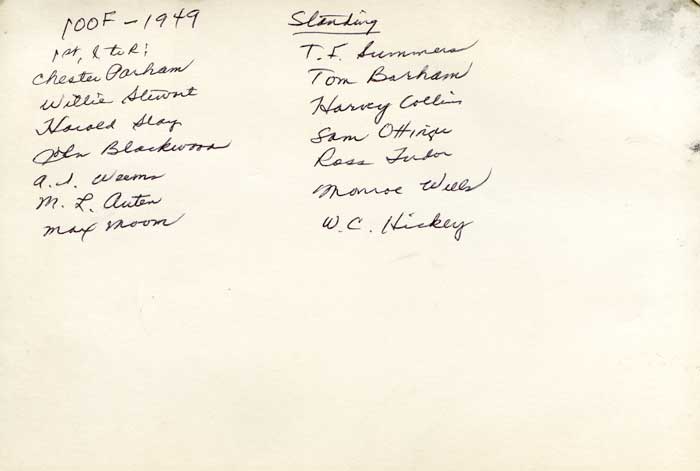 IOOF - 1949
1st, L to R:
Chester Parham
Willie Stewart
Harold Slay
John Blackwood
A. I. Weems
M. L. Auten
Max Moom
Standing
T. F. Summers
Tom Barham
Harvey Collins
Sam
Ross Tudor
Monroe Wells
W. C. Hickey